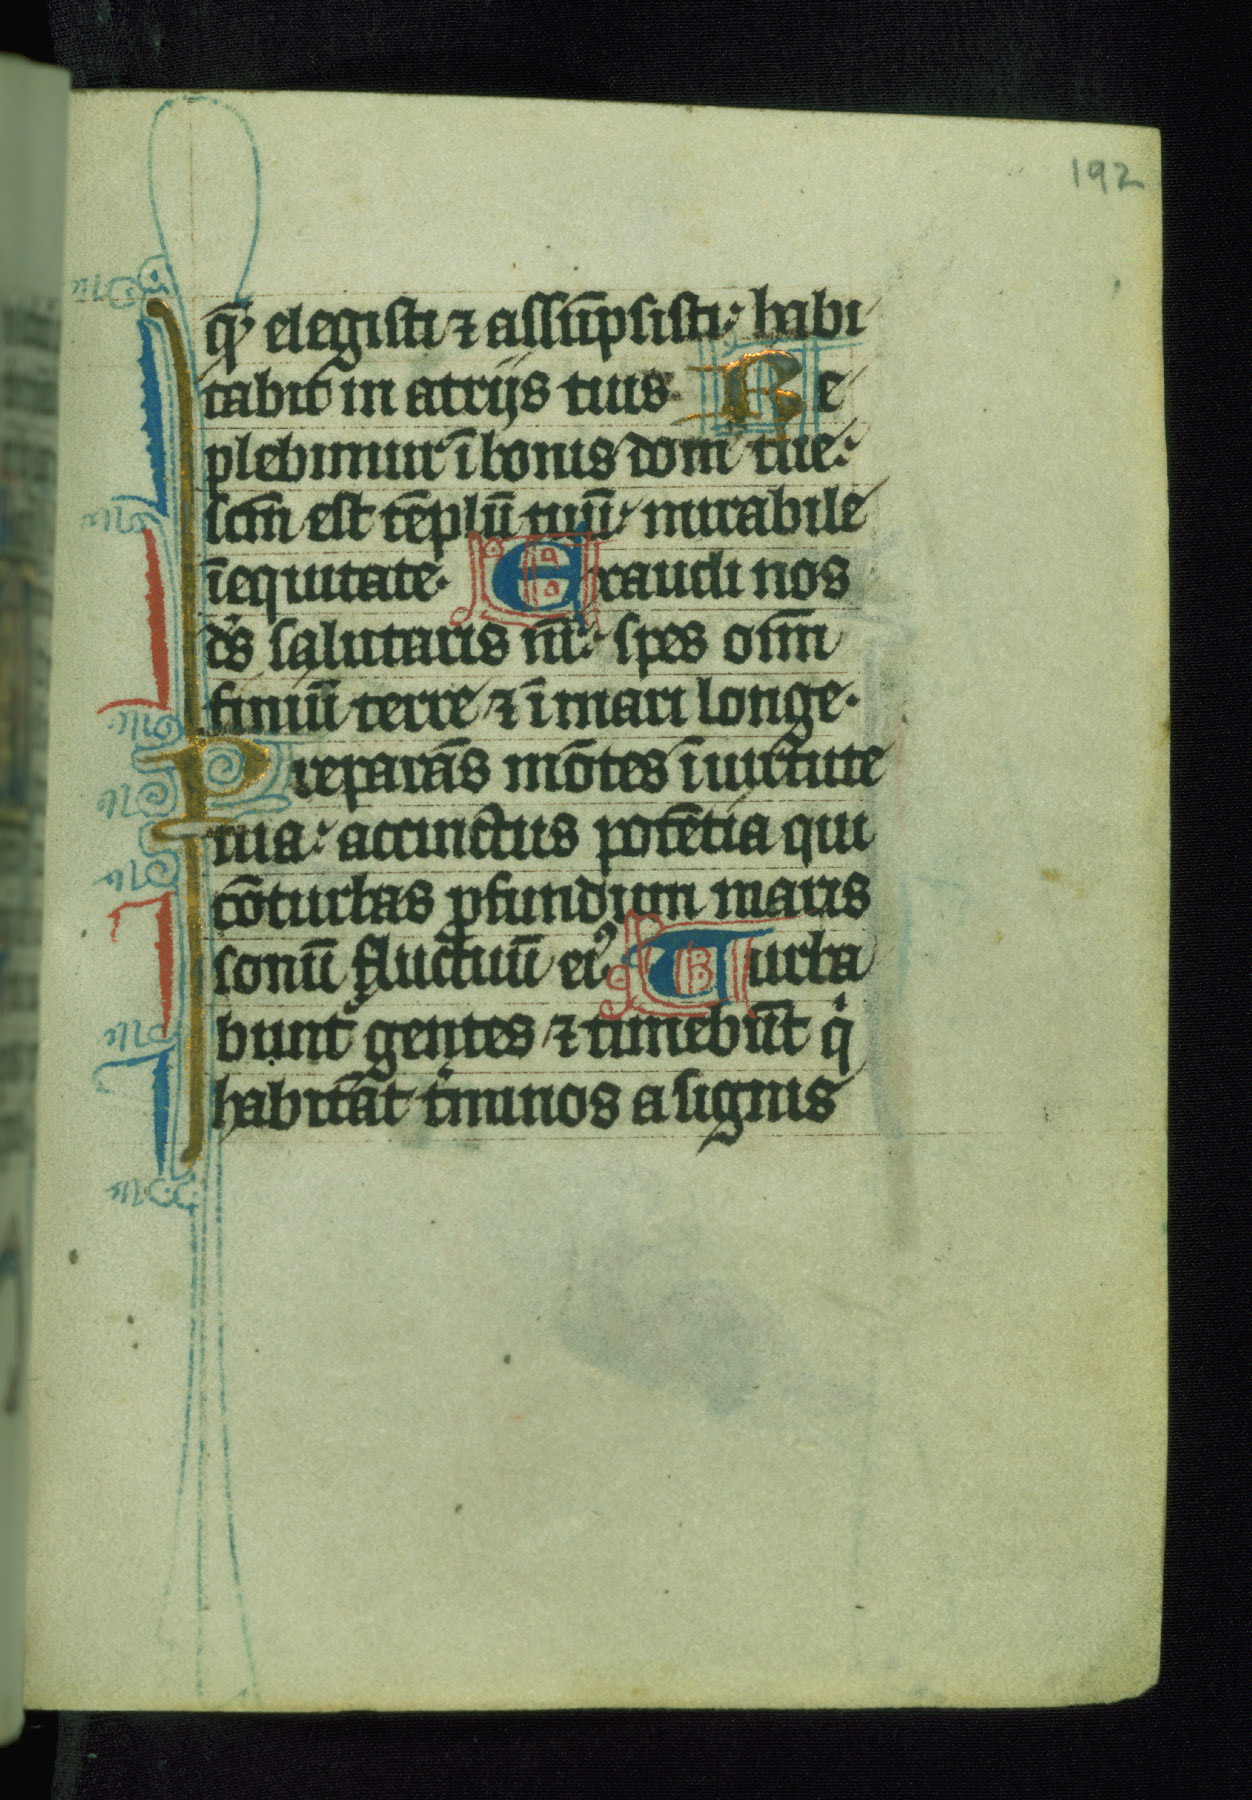 192
q̄ elegisti ⁊ assūpsisti: habi
tabit in atrijs tuis. Re
plebimur ī bonis dom tue:
scm̄ est tēplū tuū mirabile
ī equitate. Exaudi nos
ds̄ salutaris nr̄: spes oīm
finiū terre ⁊ ī mari longe.
Preparās mōtes ī uirtute
tua: accinctus potētia qui
cōturbas ꝓfundum maris
sonū fluctuū eiꝰ. Turba
bunt gentes ⁊ timebūt qͥ
habitāt tͥminos a signis